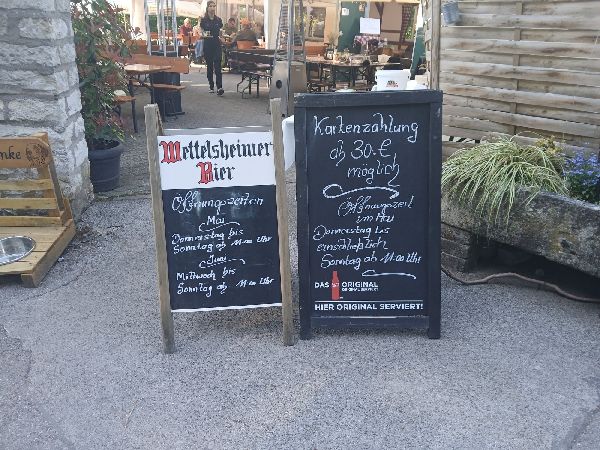 nke
Mettelsheimer
Bier
Öffnungszeiten
Mai
Donnerstag bis
Sonntag ab 11.00 Uhr
Juni
Mittwoch bis
Sonntag ab 11.00 Uhr
Kartenzahlung
ab 30.- €
möglich
Öffnungszeit
im
Donnerstag bis
einschließlich
Sonntag ab 11.00 Uhr
DAS ORIGINAL
ORIGINAL SERVIERT
HIER ORIGINAL SERVIERT!